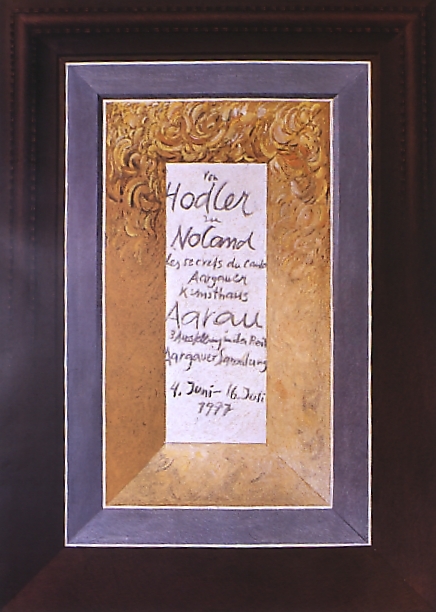 Von
Hodler
zu
Noland
Les secrets du cadre
Aargauer
Kunsthaus
Aarau
3. Ausstellung in der Reihe
Aargauer Sammlung
4. Juni - 16. Juli
1977